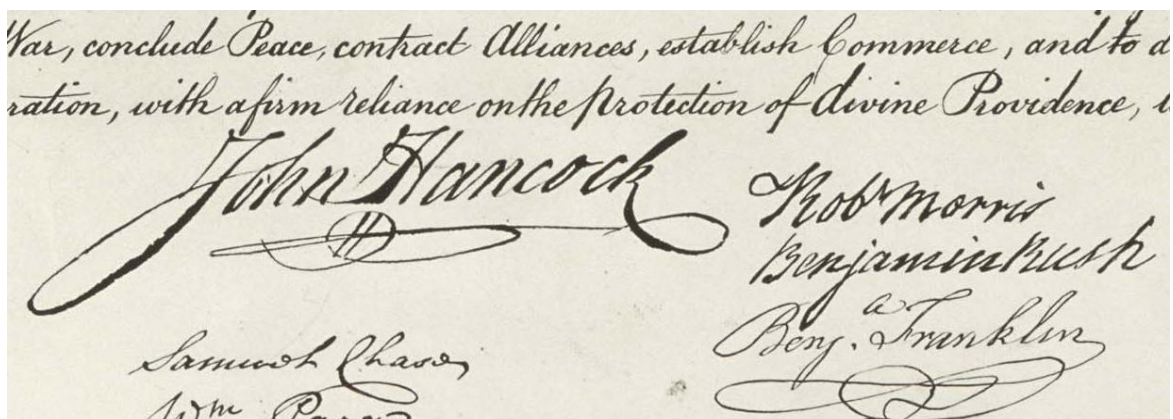 War, conclude Peace, contract Alliances, establish Commerce, and to
ration, with a firm reliance on the protection of divine Providence,
John Hancock
Rob^t Morris
Benjamin Rush
Benj^a. Franklin
Samuel Chase
W^m